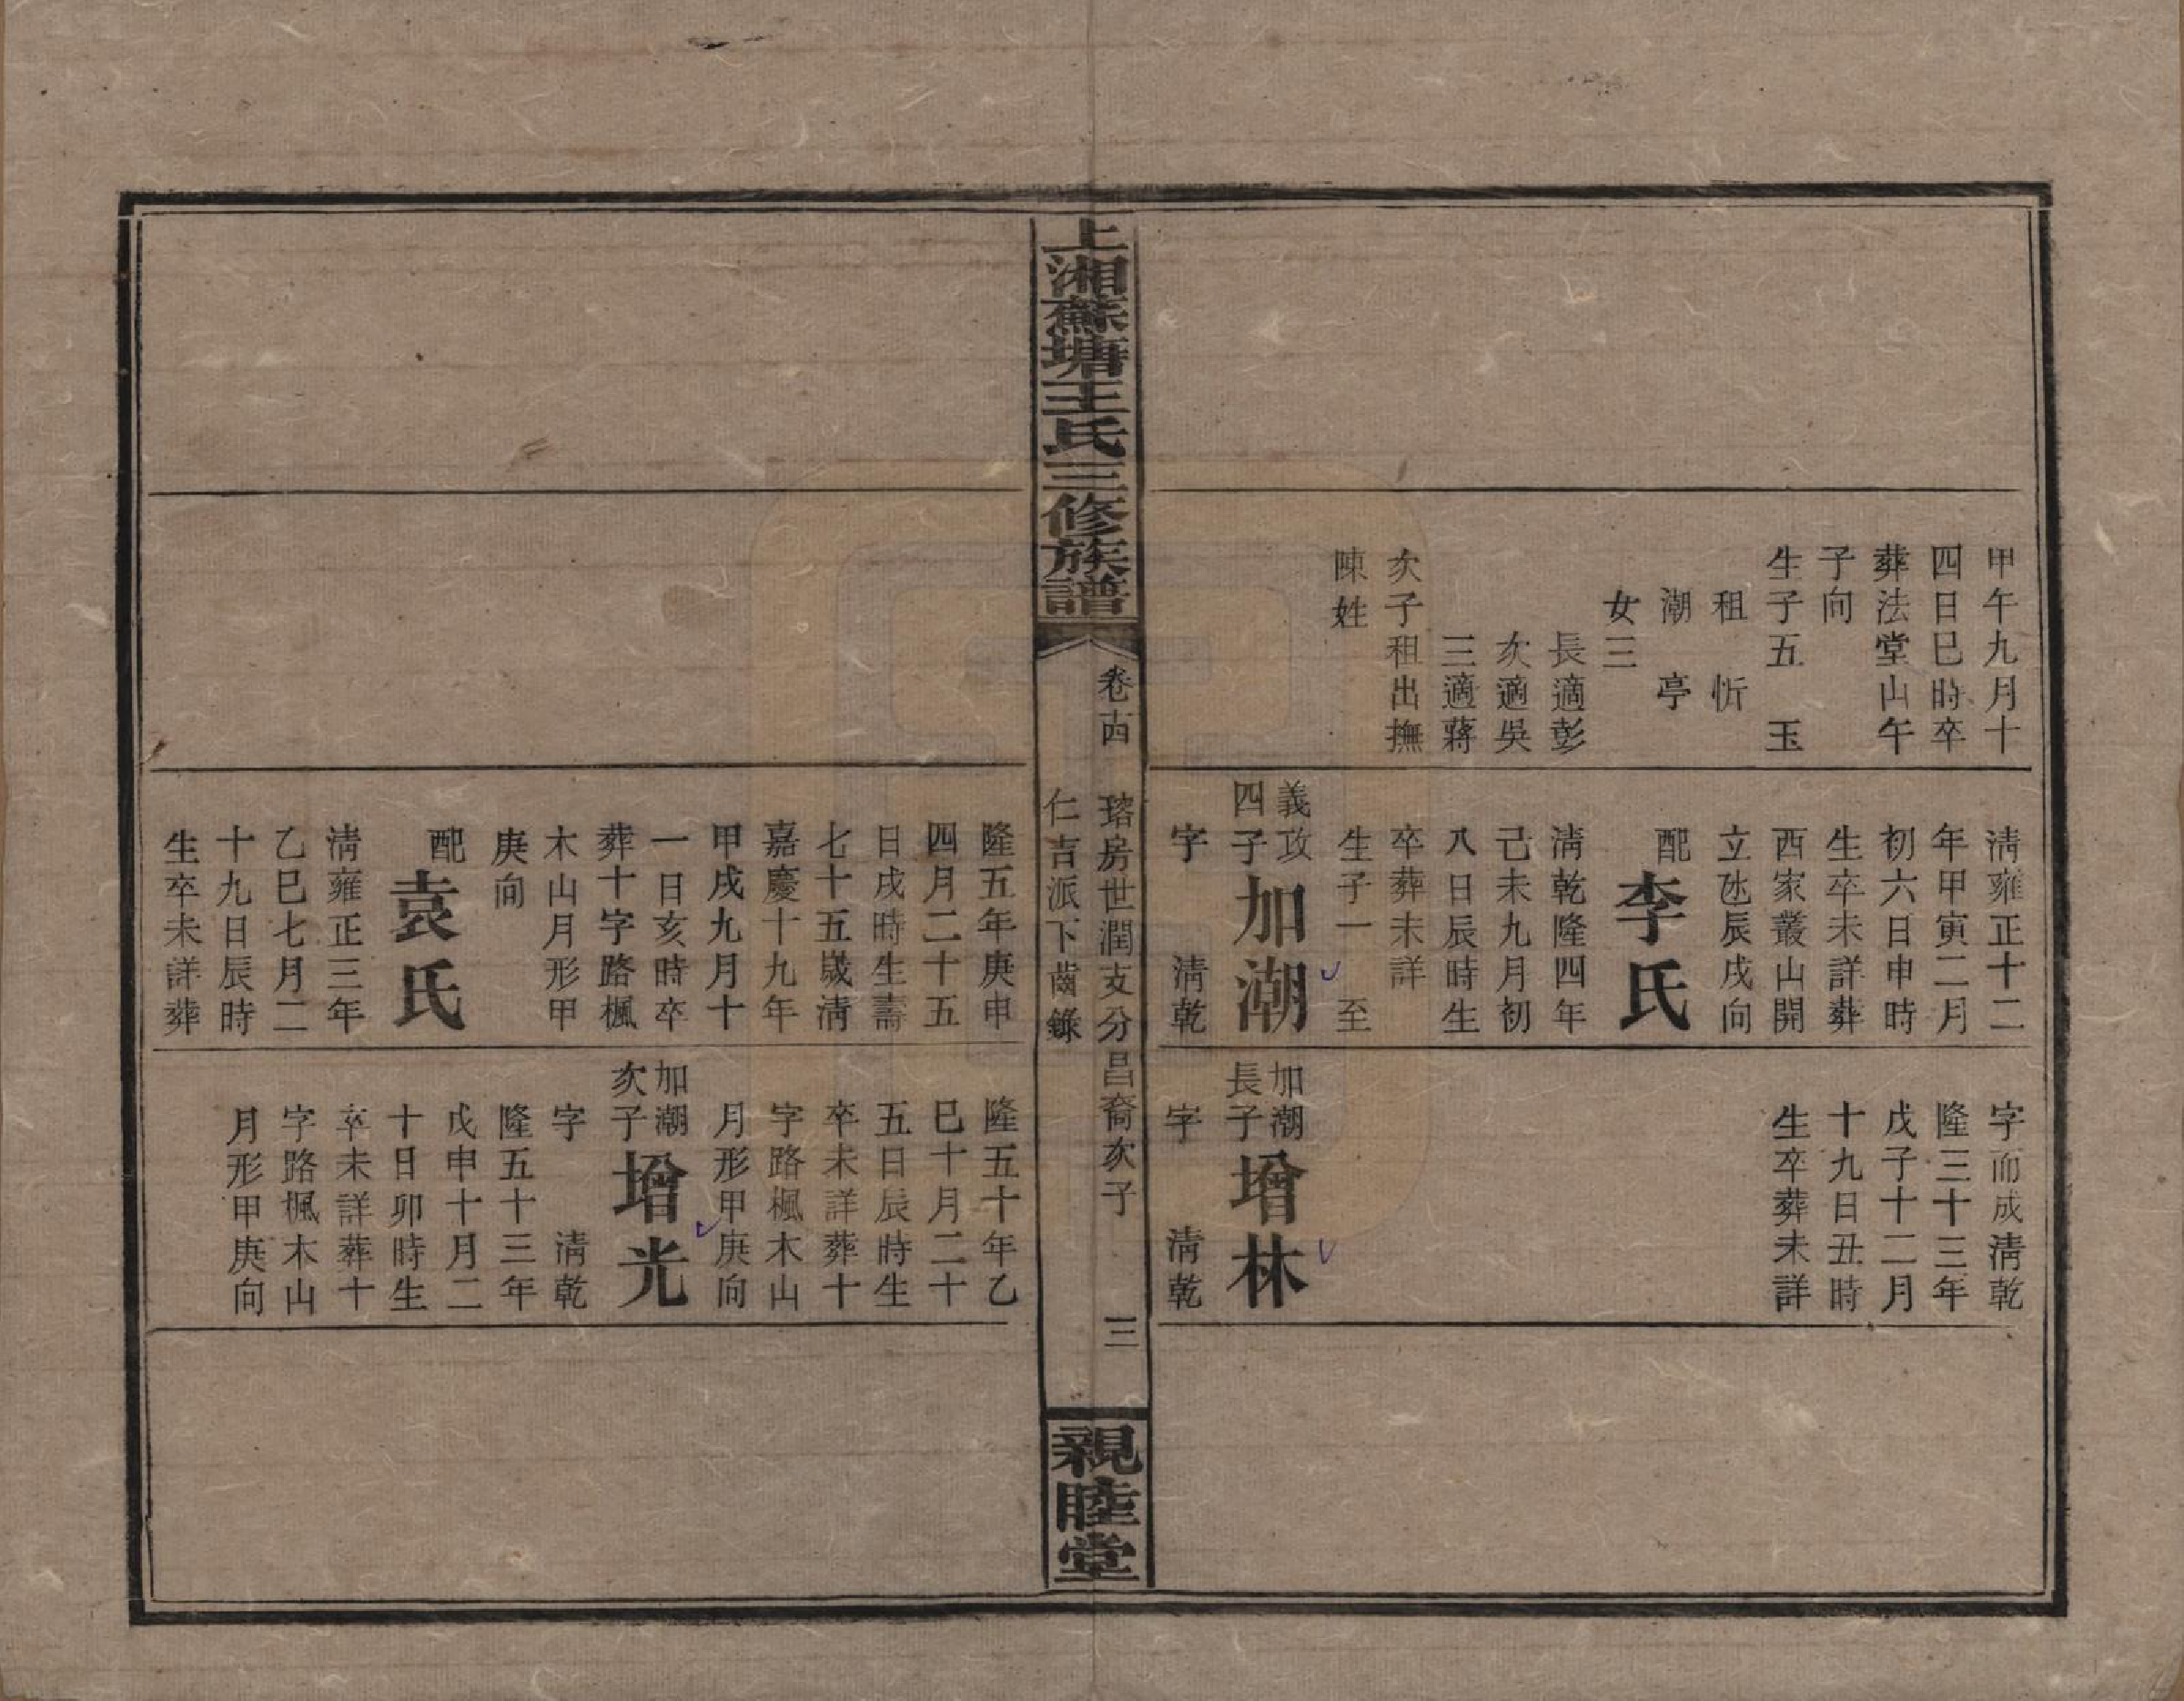 甲午九月十
四日巳時卒
葬法堂山午
子向
生子五　玉
租　忻
潮　亭
女三
長適彭
次適吳
三適蔣
次子租出撫
陳姓
清雍正十二
年甲寅二月
初六日申時
生卒未詳葬
西家叢山開
立兆辰戌向
配李氏
清乾隆四年
己未九月初
八日辰時生
卒葬未詳
生子一　至
義攻
四子加潮
字　清乾
字而成清乾
隆三十三年
戊子十二月
十九日丑時
生卒葬未詳
加潮
長子增林
字　清乾
上湘蘇塘王氏三修族譜
卷十四
瑢房世潤支分昌裔次子
仁吉派下齒錄
三
親睦堂
隆五年庚申
四月二十五
日戌時生壽
七十五歲清
嘉慶十九年
甲戌九月十
一日亥時卒
葬十字路楓
木山月形甲
庚向
配袁氏
清雍正三年
乙巳七月二
十九日辰時
生卒未詳葬
隆五十年乙
巳十月二十
五日辰時生
卒未詳葬十
字路楓木山
月形甲庚向
加潮
次子增光
字　清乾
隆五十三年
戊申十月二
十日卯時生
卒未詳葬十
字路楓木山
月形甲庚向